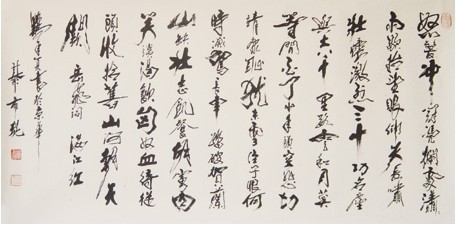 怒髮冲冠凭欄處瀟
雨歇抬望眼仰天長嘯
壯懷激烈三十功名塵
與土八千里路雲和月莫
等閒白了少年頭空悲切
靖康恥猶未雪臣子恨何
時滅駕長車踏破賀蘭
山缺壯志飢餐胡虜肉
笑談渴飲匈奴血待從
頭收拾舊山河朝天
闕 岳飛詞滿江紅
年書於京華